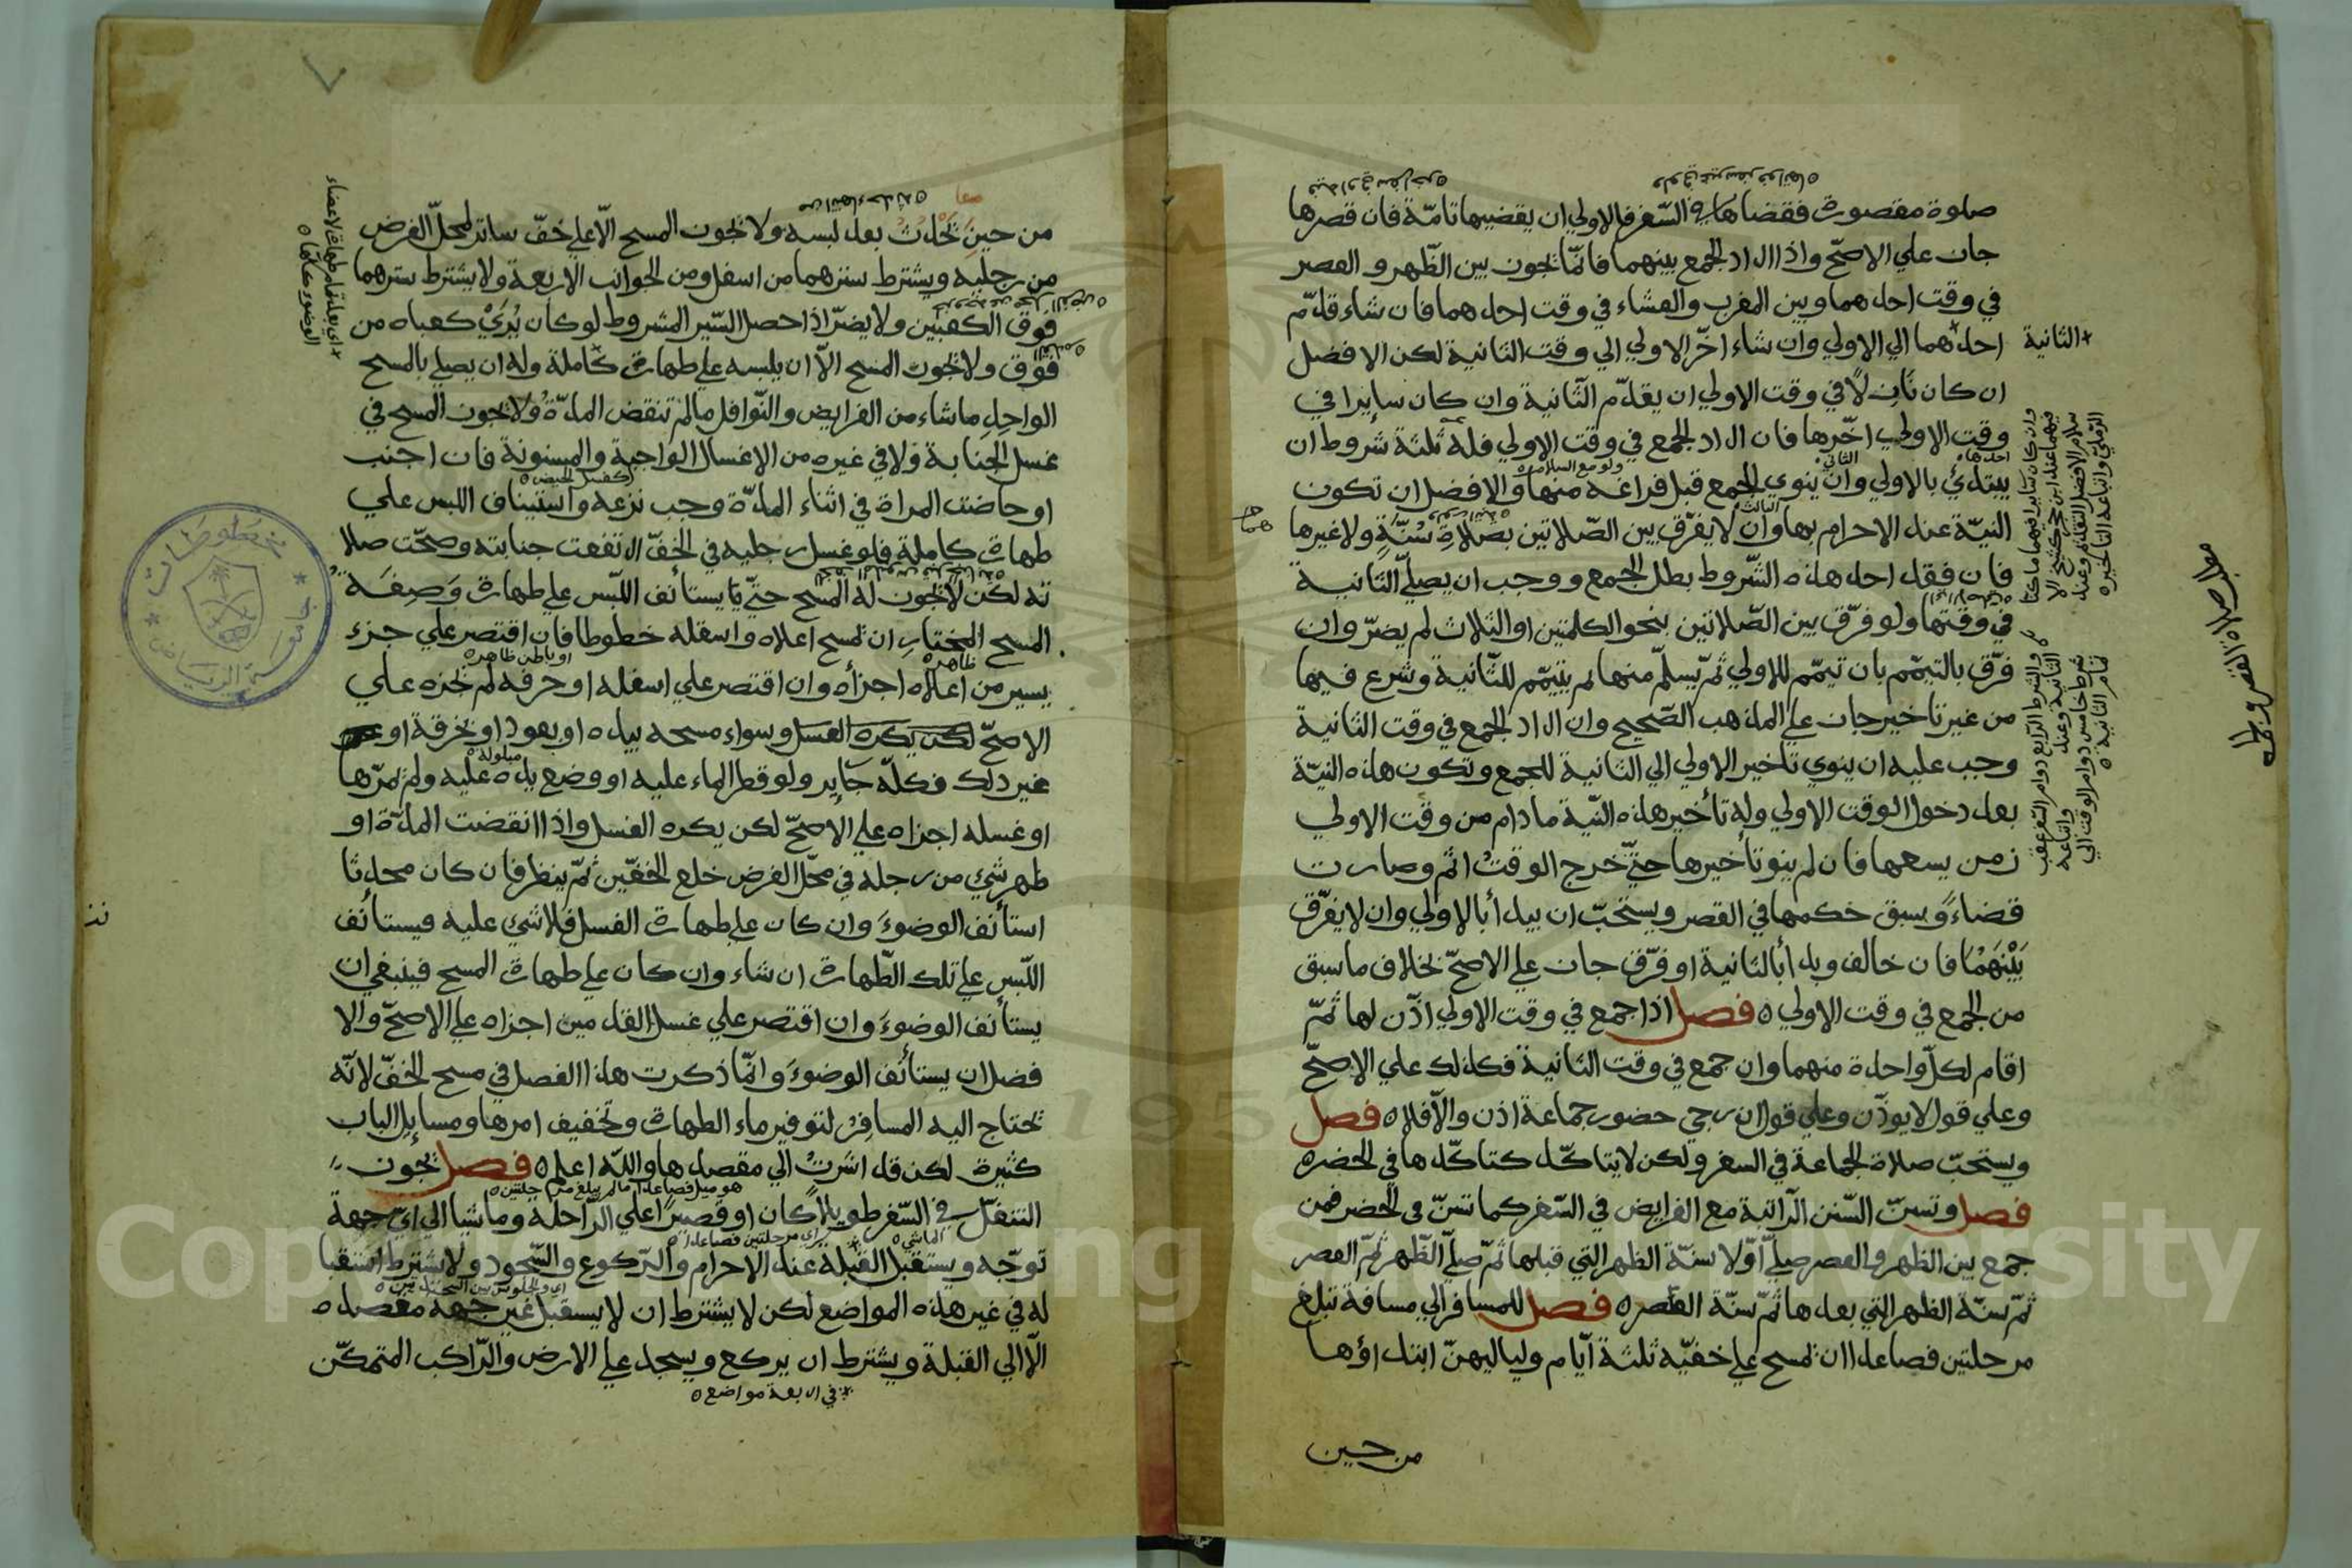 صلوة مقصورة فقضاها في السّفر فالاولي ان يقضيها تامّة فان قصرها
جاز علي الاصحّ واذا اراد الجمع بينهما فانّما يجوز بين الظّهر و العصر
في وقت احدهما وبين المغرب والعشاء في وقت احدهما فان شاء قدّم
الثانية
احدهما الي الاولي وان شاء اخّر الاولي الي وقت الثانية لكن الافضل
ان كان نازلًا في وقت الاولي ان يقدّم الثّانية وان كان سايرا في
وقت الاولي اخّرها فان اراد الجمع في وقت الاولي فله ثلثة شروط ان
احدها
الثاني
ولو مع السلام
يبتدئ بالاولي وان ينوي الجمع قبل فراغه منها والافضل ان تكون
الثالث
النيّة عند الاحرام بها وان لا يفرّق بين الصّلاتين بصلاة سُنّةٍ ولا غيرها
فان فقد احد هذه الشّروط بطل الجمع ووجب ان يصلّي الثانية
في وقتها ولو فرّق بين الصّلاتين بنحو الكلمتين او الثلاث لم يضرّ وان
فرّق بالتيمّم بان تيمّم للاولي ثمّ يسلّم منها ثم يتيمّم للثّانية وشرع فيها
من غير تاخير جاز علي المذهب الصّحيح وان اراد الجمع في وقت الثانية
وجب عليه ان ينوي تاخير الاولي الي الثانية للجمع وتكون هذه النيّة
بعد دخول الوقت الاولي وله تأخير هذه النّية ما دام من وقت الاولي
زمن يسعها فان لم ينو تأخيرها حتّي خرج الوقت اثم وصارت
قضاءً وسبق حكمها في القصر ويستحبّ ان يبدأ بالاولي وان لا يفرّق
بَيْنَهُمَا فان خالف وبدأ بالثانية او فرّق جاز علي الاصحّ بخلاف ما سبق
من الجمع في وقت الاولي ه فصل اذا جمع في وقت الاولي اذّن لها ثمّ
اقام لكلّ واحدة منهما وان جمع في وقت الثانية فكذلك علي الاصحّ
وعلي قول لا يوذّن وعلي قول ان رجي حضور جماعة اذن والّا فلا ه فصل
ويستحبّ صلاة الجماعة في السفر ولكن لا يتاكّد كتاكّدها في الحضر ه
فصل وتسنّ السّنن الرّاتبة مع الفرايض في السّفر كما تسنّ في الحضر فمن
جمع بين الظهر والعصر صلّي اوّلا سنّة الظهر الّتي قبلها ثمّ صلّي الظّهر ثمّ العصر
ثمّ سنّة الظهر التي بعدها ثمّ سنّة العصر ه فصل للمسافر الي مسافة تبلغ
مرحلتين فصاعدا ان يمسح علي خفيّه ثلثة ايّام ولياليهنّ ابتداؤها
من حين
وان كان سايرا فيهما
والشرط الرابع دوام السّفر عقب
شرط خامس دوام الوقت الي
تمام الثانية
من حين يحدث بعد لبسه ولا يجوز المسح الّا علي خفّ ساتر لمحلّ الفرض
من رجليه ويشترط سترهما من اسفل ومن الجوانب الاربعة ولا يشترط سترهما
فوق الكعبين ولا يضرّ اذا حصل السّتر المشروط لو كان يُرَيٰ كعباه من
فوق ولا يجوز المسح الّا ان يلبسه علي طهارة كاملة وله ان يصلي بالمسح
الواحدِ ما شاء من الفرايض والنّوافل ما لم تنقض المدّة ولا يجوز المسح في
غسل الجنابة ولا في غيره من الاغسال الواجبة والمسنونة فان اجنب
كغسل الحيض
او حاضت المراة في اثناء المدّة وجب نزعه واستيناف اللبس علي
طهارة كاملة فلو غسل رجليه في الخفّ ارتفعت جنابته وصحّت صلا
ته لكن لا يجوز له المسح حتّي يستأنف اللّبس علي طهارة وَصِفَة
المسح المختارِ ان يمسح اعلاه واسفله خطوطا فان اقتصر علي جزء
ظاهره
او باطن ظاهره
يسير من اعلاه اجزأه وان اقتصر علي اسفله او حرفه لم يجزه علي
الاصحّ لكن يكره الغسل وسواء مسحه بيده او بعود او بخرقة او
مبلولة
غير ذلك فكلّه جاير ولو قطر الماء عليه او وضع يده عليه ولم يمرّها
او غسله اجزاه علي الاصحّ لكن يكره الغسل واذا انقضت المدّة او
ظهر شئ من رجله في محّل الفرض خلع الخفّين ثمّ ينظر فان كان محدثا
استأنف الوضوءَ وان كان علي طهارة الغسل فلا شئ عليه فيستأنف
اللّبس علي تلك الطّهارة ان شاء وان كان علي طهارة المسح فينبغي ان
يستأنف الوضوءَ وان اقتصر علي غسل القدمين اجزاه علي الاصحّ والا
فضل ان يستأنف الوضوءَ وانّما ذكرت هذا الفصل في مسح الخفّ لانّه
يحتاج اليه المسافر لتوفير ماء الطهارة وتخفيف امرها ومسايل الباب
كثيرة لكن قد اشرت الي مقصدها واللّه اعلم ه فصل يجوز
هو ميل فصاعدا ما لم يبلغ مرحلتين
التنفّل في السّفر طويلًا كان او قصيرًا علي الرّاحلة وماشيا الي ايّ جهة
الماشي
اي مرحلتين فصاعدا
توجّه ويستقبل القبلة عند الاحرام والرّكوع والسّجود ولا يشترط استقبا
اي والجلوس بين السجدتين
له في غير هذه المواضع لكن لا يشترط ان لا يسقبل غير جهة مقصده
الّا الي القبلة ويشترط ان يركع ويسجد علي الارض والرّاكب المتمكّن
في اربعة مواضع
Copyright © King Saud University
1957
مخطوطات
جامعة الرياض